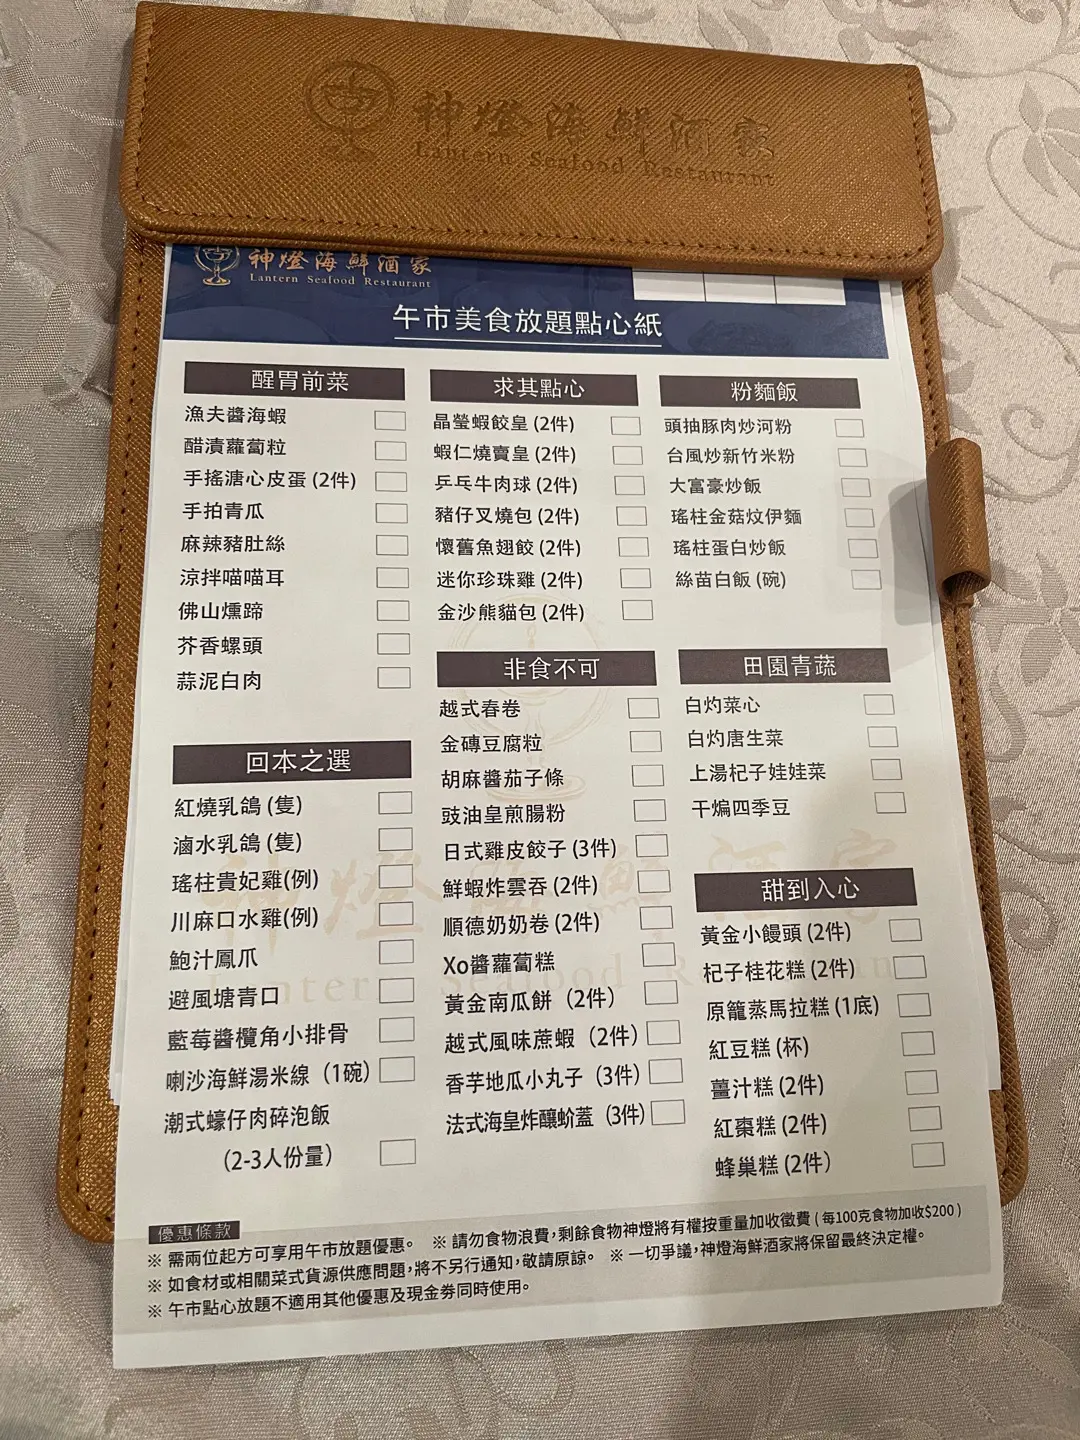 神燈海鮮酒家
Lantern Seafood Restaurant
神燈海鮮酒家
Lantern Seafood Restaurant
午市美食放題點心紙
醒胃前菜
漁夫醬海蝦
醋漬蘿蔔粒
手搖溏心皮蛋 (2件)
手拍青瓜
麻辣豬肚絲
涼拌喵喵耳
佛山燻蹄
芥香螺頭
蒜泥白肉
回本之選
紅燒乳鴿 (隻)
滷水乳鴿 (隻)
瑤柱貴妃雞(例)
川麻口水雞(例)
鮑汁鳳爪
避風塘青口
藍莓醬欖角小排骨
喇沙海鮮湯米線（1碗）
潮式蠔仔肉碎泡飯
（2-3人份量）
求其點心
晶瑩蝦餃皇 (2件)
蝦仁燒賣皇 (2件)
乒乓牛肉球 (2件)
豬仔叉燒包 (2件)
懷舊魚翅餃 (2件)
迷你珍珠雞 (2件)
金沙熊貓包 (2件)
非食不可
越式春卷
金磚豆腐粒
胡麻醬茄子條
豉油皇煎腸粉
日式雞皮餃子 (3件)
鮮蝦炸雲吞 (2件)
順德奶奶卷 (2件)
Xo醬蘿蔔糕
黃金南瓜餅（2件）
越式風味蔗蝦（2件）
香芋地瓜小丸子（3件）
法式海皇炸釀蚧蓋（3件）
粉麵飯
頭抽豚肉炒河粉
台風炒新竹米粉
大富豪炒飯
瑤柱金菇炆伊麵
瑤柱蛋白炒飯
絲苗白飯 (碗)
田園青蔬
白灼菜心
白灼唐生菜
上湯杞子娃娃菜
干煸四季豆
甜到入心
黃金小饅頭 (2件)
杞子桂花糕 (2件)
原籠蒸馬拉糕 (1底)
紅豆糕 (杯)
薑汁糕 (2件)
紅棗糕 (2件)
蜂巢糕 (2件）
神燈海鮮酒家
優惠條款
※ 需兩位起方可享用午市放題優惠。 ※ 請勿食物浪費，剩餘食物神燈將有權按重量加收徵費 ( 每100克食物加收$200 )
※ 如食材或相關菜式貨源供應問題，將不另行通知，敬請原諒。 ※ 一切爭議，神燈海鮮酒家將保留最終決定權。
※ 午市點心放題不適用其他優惠及現金券同時使用。